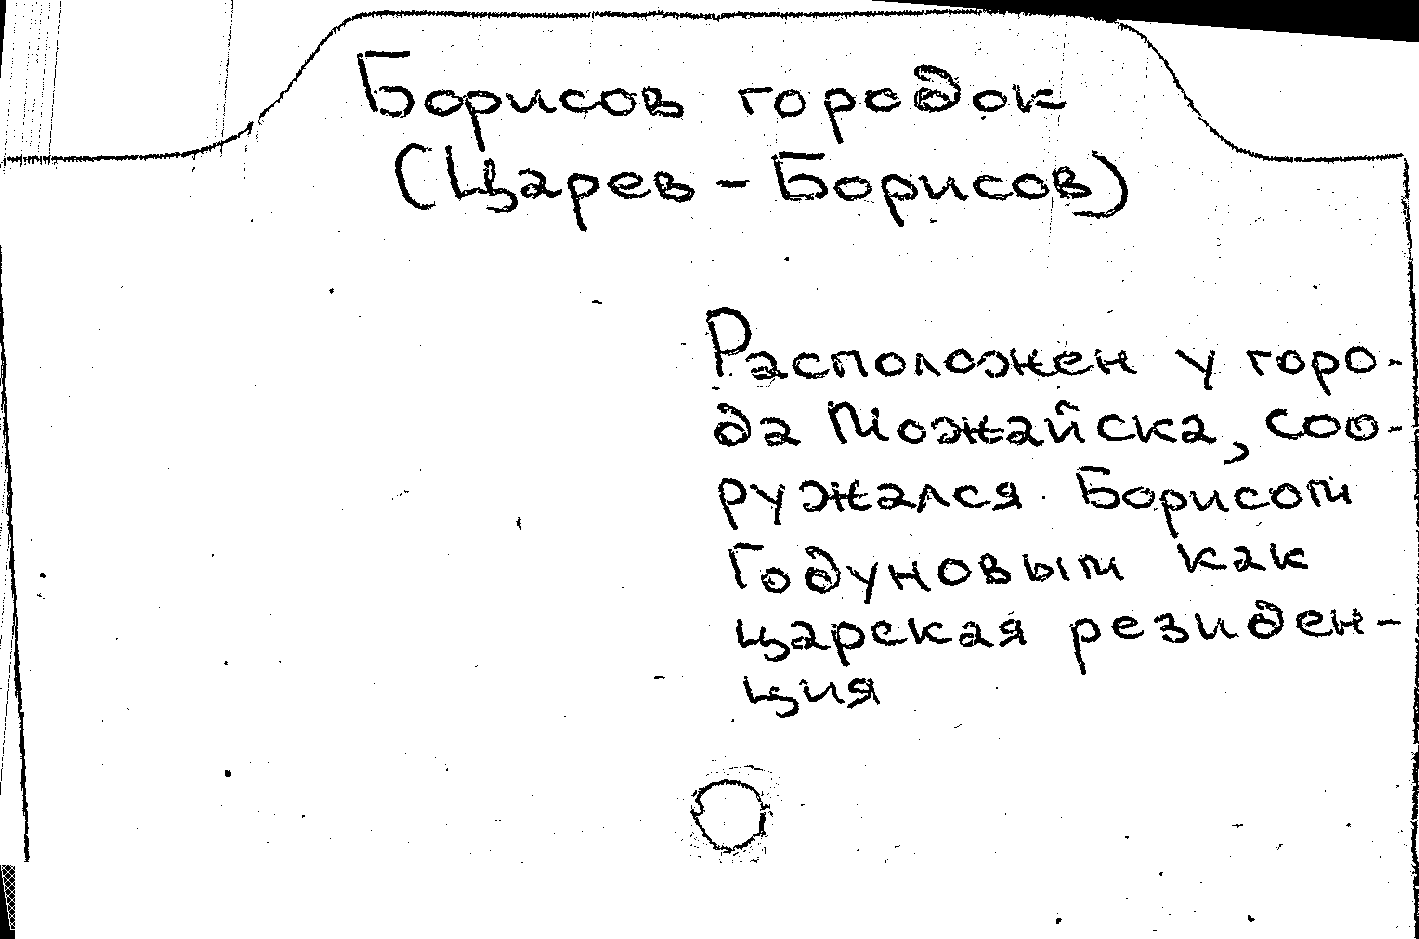 Борисов городок
(Царев-Борисов)
Расположен у горо-
да Можайска, соо-
ружался Борисом
Годуновым как
царская резиден-
ция